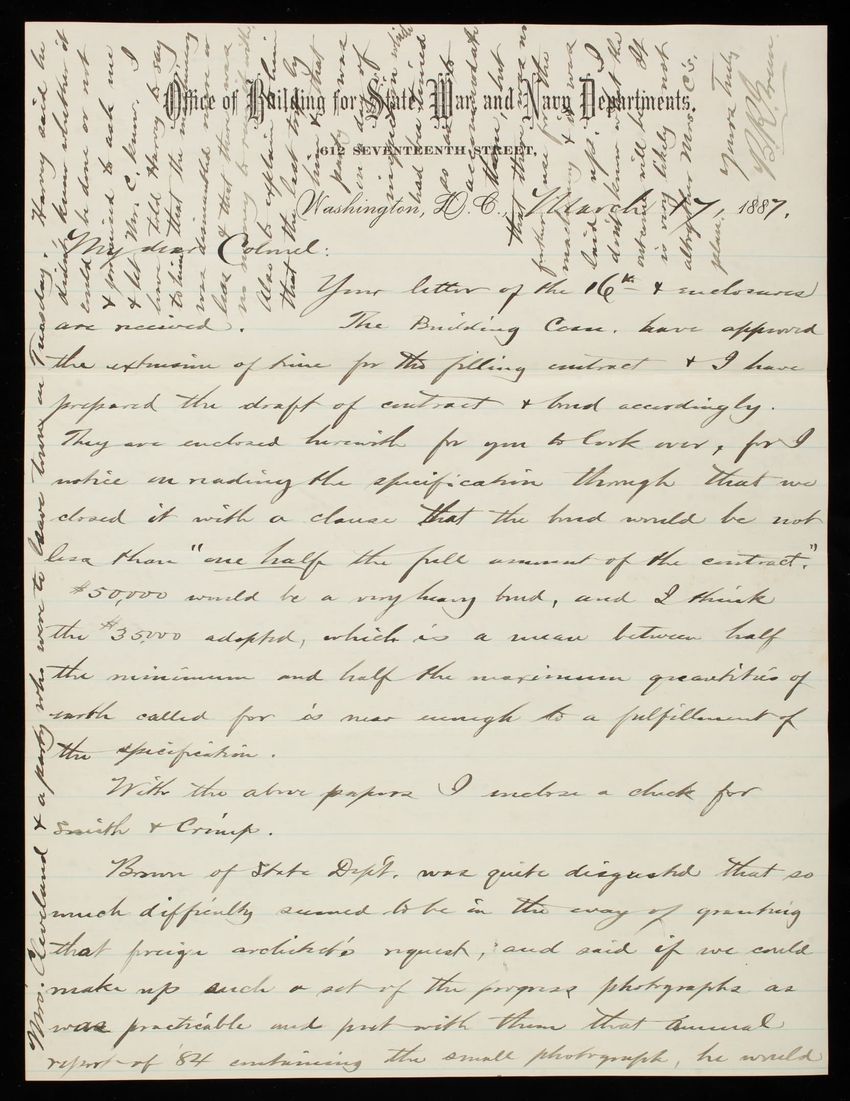 Office of Building for State, War and Navy Departments.
612 SEVENTEENTH STREET,
Washington, D. C., March 17, 1887.
My dear Colonel:
Your letter of the 16th & enclosures
are received. The Building Com. have approved
the extension of time for the filling contract & I have
prepared the draft of contract & bond accordingly.
They are enclosed herewith for you to look over, for I
notice on reading the specification through that we
closed it with a clause that the bond would be not
less than "one half the full amount of the contract."
$50,000 would be a very heavy bond, and I think
the $35000 adopted, which is a mean between half
the minimum and half the maximum quantities of
earth called for is near enough to a fulfillment of
the specification.
With the above papers I inclose a check for
Smith & Crimp.
Brown of State Dept. was quite disgusted that so
much difficulty seemed to be in the way of granting
that foreign architect's request, and said if we could
make up such a set of the progress photographs as
was practicable and put with them that annual
report of '84 containing the small photograph, he would
Mrs. Cleveland & a party who were to leave town on Tuesday. Harry said he
didn't know whether it
could be done or not
& promised to ask me
& let Mrs. C. know. I
have told Harry to say
to him that the
was dismantled more or
less & that there was
no
Also to explain to him
that the last trip by
him & that
party was
in day of
had
so as to
accommodate
them, but
that there was no
further use for the
machinery & it was
laid up. I
don't know what the
outcome will be. It
is very likely not
altogether Mrs. C's.
plan.
Yours truly
B. R. Green.